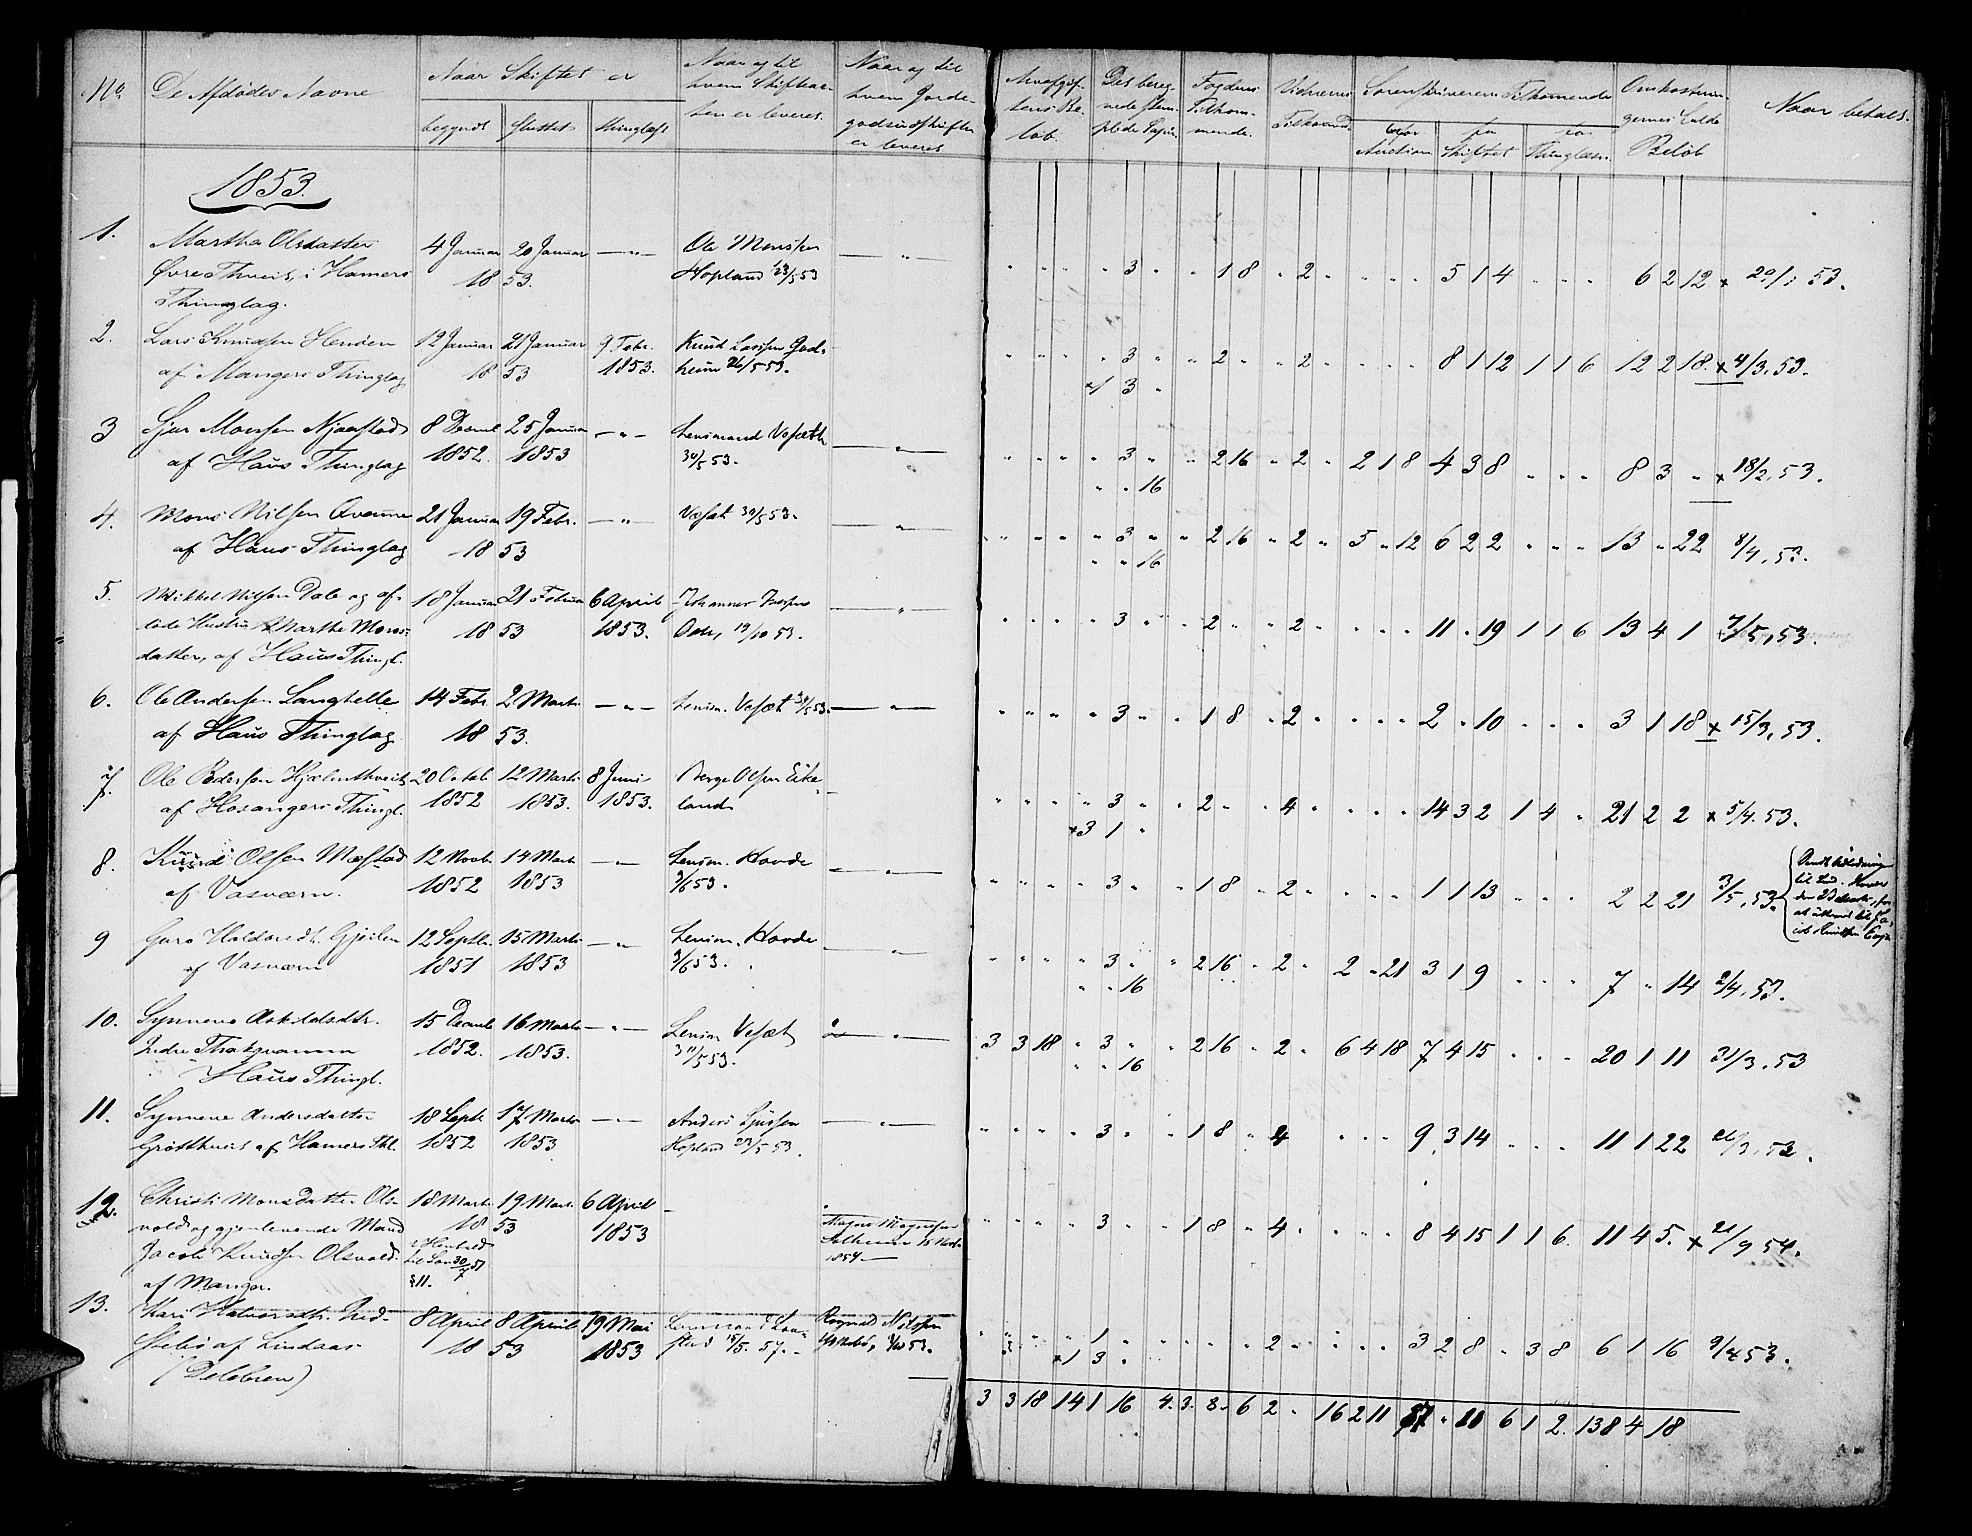 No. De Afdødes Navne Naar Skiftet er begyndt sluttet thinglæst Naar og til hvem Skifteacten er leveret. Naar og til hvem Jordegodsudskriften er leveret Arveafgiftens Beløb. Det beregnede stemplede Papir. Fogdens Tilkommende. Vidnernes Tilkomme. Sorenskriverens Tilkommende for Auction. for Skiftet for Thinglæsn. Omkostningernes hele Beløb Naar betalt.
1853.
1. Martha Olsdatter 4 Januar 20 Januar — " — Ole Monsen — " —
Øvre Thveit, i Hamers 18 53. Hopland 23/5 53 " " " " 3 " " 1 8 " 2 " " " " 5 1 4 " " " 6 2 12 x 29/1 53.
Thinglag.
2. Lars Knudsen Henøen 12 Januar 21 Januar 9 Febr. Knud Larsen God-
af Mangers Thinglag 18 53 1853. heim 26/5 53. " " " " 3 " " 2 " " 2 " " " " 8 1 12 1 1 6 12 2 18. x 4/3. 53.
3 "
3 Sjur Monsen Njaastad 8 Decemb 25 Januar — " — Lensmand Vefæth — " —
af Haus Thinglag 1852. 1853 30/5 53. " " " " 3 " " 2 16 " 2 " 2 1 8 4 3 8 " " " 8 3 " x 18/2. 53.
" " 16
4. Mons Nilsen Qvamme 21 Januar 19 Febr. — " Vefæt 30/5 53. — " —
af Haus Thinglag 18 53 " " " " 3 " " 2 16 " 2 " 5 " 12 6 2 2 " " " 13 " 22 8/4, 53.
" " 16
5. Mikkel Nilsen Dale og af- 18 Januar 21 Februar 6 April Johannes — " —
døde Hustru Marthe Mons- 18 53 1853. 19/10 53. " " " " 3 " " 2 " " 2 " " " " 11 " 19 1 1 6 13 4 1 7/5, 53.
datter, af Haus Thingl.
6. Ole Andersen Langhelle 14 Febr. 2 Marts — " — Lensm. Vefæt 30/5 53. — " —
af Haus Thinglag 18 53. " " " " 3 " " 1 8 " 2 " " " " 2 " 10 " " " 3 1 18 x 15/3, 53.
7. Ole Pedersen Hjelmthveit 20 Octob 12 Marts 8 Juni Berge Olsen Eike-
af Hosangers Thingl. 1852 1853. 1853. land " " " " 3 " " 2 " " 4 " " " " 14 3 2 1 4 " 21 2 2 x 5/4. 53.
x3 1 "
8. Knud Olsen Mæstad 12 Novb 14 Marts — " Lensm. Hovde — " —
af Vasværn. 1852 1853 3/6 53. " " " " 3 " " 1 8 " 2 " " " " 1 1 13 " " " 2 2 21 3/5, 53.
9 Guro Haldorsdt. Gjeilen 12 Septb. 15 Marts — " Lensm. Hovde — " —
af Vasværn 1851 1853 3/6 53. " " " " 3 " " 2 16 " 2 " 2 " 21 3 1 9 " " " 7 " 14 2/4, 53.
" " 16
10. Synneve Askildsdtr. 15 Decemb 16 Marts — " — Lensm Vefæt — " —
Indre Thakqvamm 1852. 1853. 30/5 53. 3 3 18 " 3 " " 2 16 " 2 " 6 4 18 7 4 15 " " " 20 1 11 31/3. 53
Haus Thingl. " " 16
11. Synneve Andersdatter 18 Septb 17 Marts — " Anders Sjursen — " —
Grøtthveit af Hamers Thl. 1852 1853 Hopland 23/5 53. " " " " 3 " " 1 8 " 4 " " " 9 3 14 " " " 11 1 22 26/3, 53.
12. Christi Monsdatter Ols- 18 Marts 19 Marts 6 April —
vold og gjenlevende Mand 18 53 1853 Magne Magnesen " " " " 3 " " 1 8 " 4 " " " " 8 4 15 1 1 6. 11 4 5. x 21/9 54.
Jacob Knudsen Olsvold. 1854.
af Manger. § 11.
13. Kari Halvorsdtr. Ned- 8 April 8 April 19 Mai Lensmand Rognald Nilsen
stebø af Lindaas 18 53 1853 15/5. 57. " " " " 1 " " " " " 2 " " " " 3 2 8 " 3 8 6 1 16 9/4 53.
(Delebrev) x1 3 "
3 3 18 14 1 16 4. 3. 8. 6 2 " 16 2 11 87 " 20 6 1 2. 138 4 18